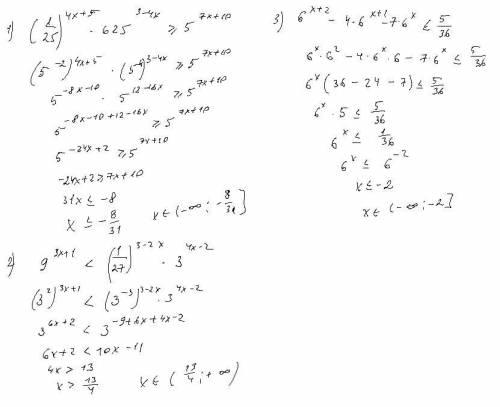 1) (1/25)^{4x+5} · 625^{3-4x} ≥ 5^{7x+10}
(5^{-2})^{4x+5} · (5^4)^{3-4x} ≥ 5^{7x+10}
5^{-8x-10} · 5^{12-16x} ≥ 5^{7x+10}
5^{-8x-10+12-16x} ≥ 5^{7x+10}
5^{-24x+2} ≥ 5^{7x+10}
-24x+2 ≥ 7x+10
31x ≤ -8
x ≤ -8/31   x∈(-∞; -8/31]
2) 9^{3x+1} < (1/27)^{3-2x} · 3^{4x-2}
(3^2)^{3x+1} < (3^{-3})^{3-2x} · 3^{4x-2}
3^{6x+2} < 3^{-9+6x+4x-2}
6x+2 < 10x-11
4x > 13
x > 13/4   x∈(13/4; +∞)
3) 6^{x+2} - 4·6^{x+1} - 7·6^x ≤ 5/36
6^x·6^2 - 4·6^x·6 - 7·6^x ≤ 5/36
6^x(36-24-7) ≤ 5/36
6^x·5 ≤ 5/36
6^x ≤ 1/36
6^x ≤ 6^{-2}
x ≤ -2
x∈(-∞; -2]